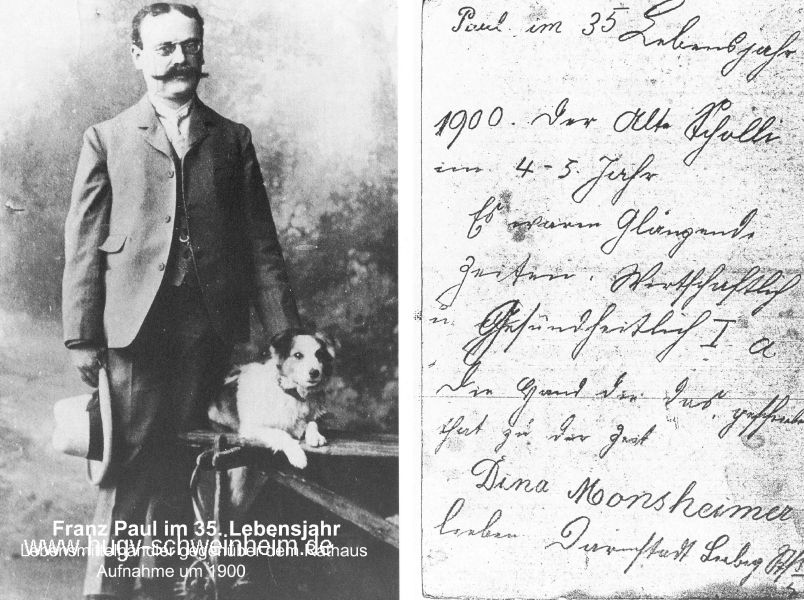 Franz Paul im 35. Lebensjahr
www.hugv-schwanheim.de
Lebensmittelhändler gegenüber dem Rathaus
Aufnahme um 1900
Paul im 35 Lebensjahr
1900. Der Alte Scholli
im 4-5. Jahr
Es waren Glänzende
Zeiten. Wirtschaftlich
u. Gesundheitlich I a
Die Hand die das geschrieben
hat zu der Zeit
Dina Monsheimer
Darmstadt